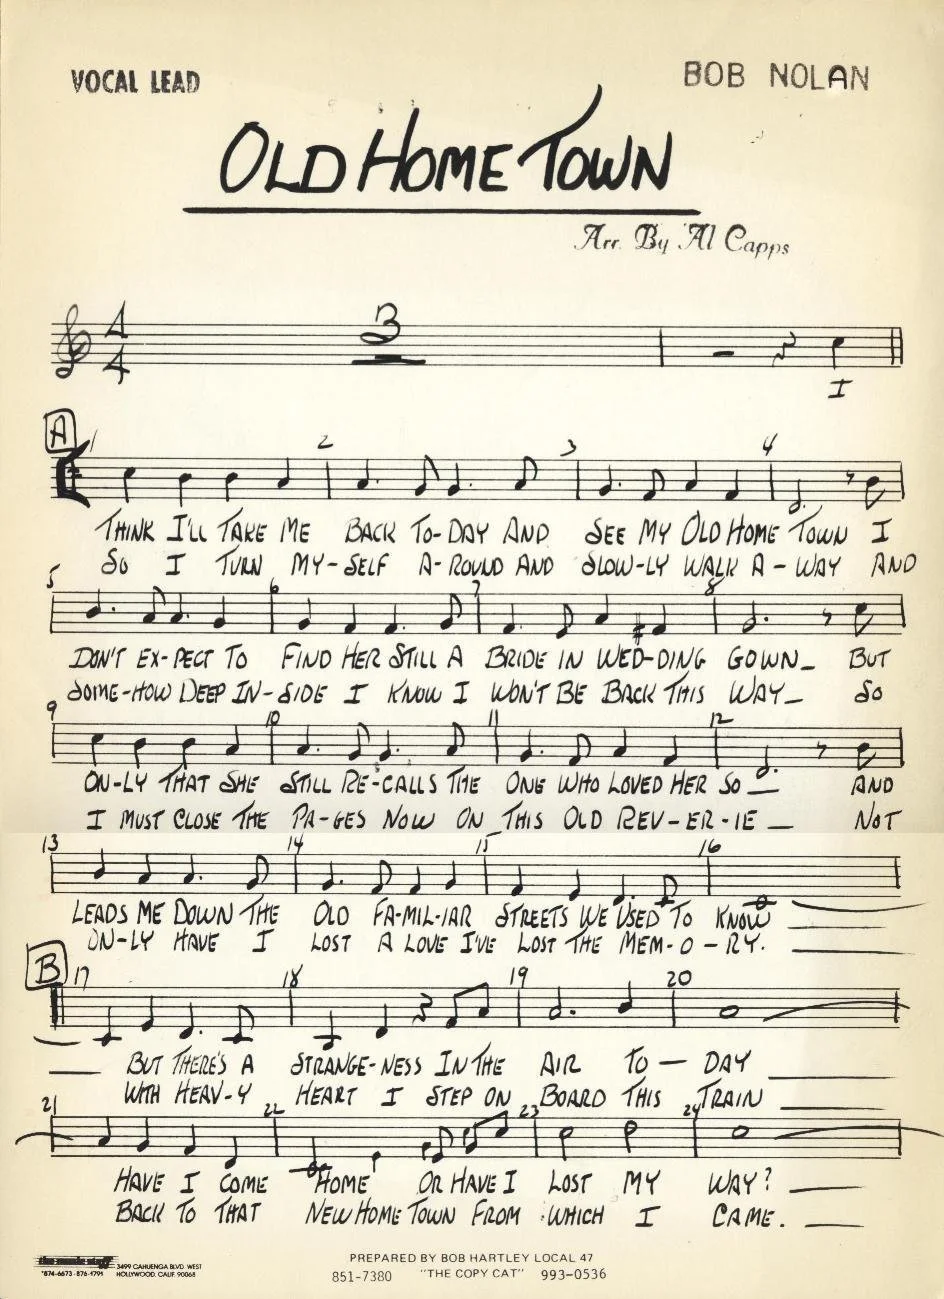 VOCAL LEAD
BOB NOLAN
OLD HOME TOWN
Arr. By Al Capps
4
4
3
I
A
1 2 3 4
THINK I'LL TAKE ME BACK TO-DAY AND SEE MY OLD HOME TOWN I
SO I TURN MY-SELF A-ROUND AND SLOW-LY WALK A-WAY AND
5 6 7 8
DON'T EX-PECT TO FIND HER STILL A BRIDE IN WED-DING GOWN_ BUT
SOME-HOW DEEP IN-SIDE I KNOW I WON'T BE BACK THIS WAY_ SO
9 10 11 12
ON-LY THAT SHE STILL RE-CALLS THE ONE WHO LOVED HER SO_ AND
I MUST CLOSE THE PA-GES NOW ON THIS OLD REV-ER-IE_ NOT
13 14 15 16
LEADS ME DOWN THE OLD FA-MIL-IAR STREETS WE USED TO KNOW
ON-LY HAVE I LOST A LOVE I'VE LOST THE MEM-O-RY.
B
17 18 19 20
BUT THERE'S A STRANGE-NESS IN THE AIR TO-DAY
WITH HEAV-Y HEART I STEP ON BOARD THIS TRAIN
21 22 23 24
HAVE I COME HOME OR HAVE I LOST MY WAY?
BACK TO THAT NEW HOME TOWN FROM WHICH I CAME.
the music staff 3499 CAHUENGA BLVD. WEST
874-6673 · 876-4791 HOLLYWOOD, CALIF. 90068
PREPARED BY BOB HARTLEY LOCAL 47
851-7380 "THE COPY CAT" 993-0536